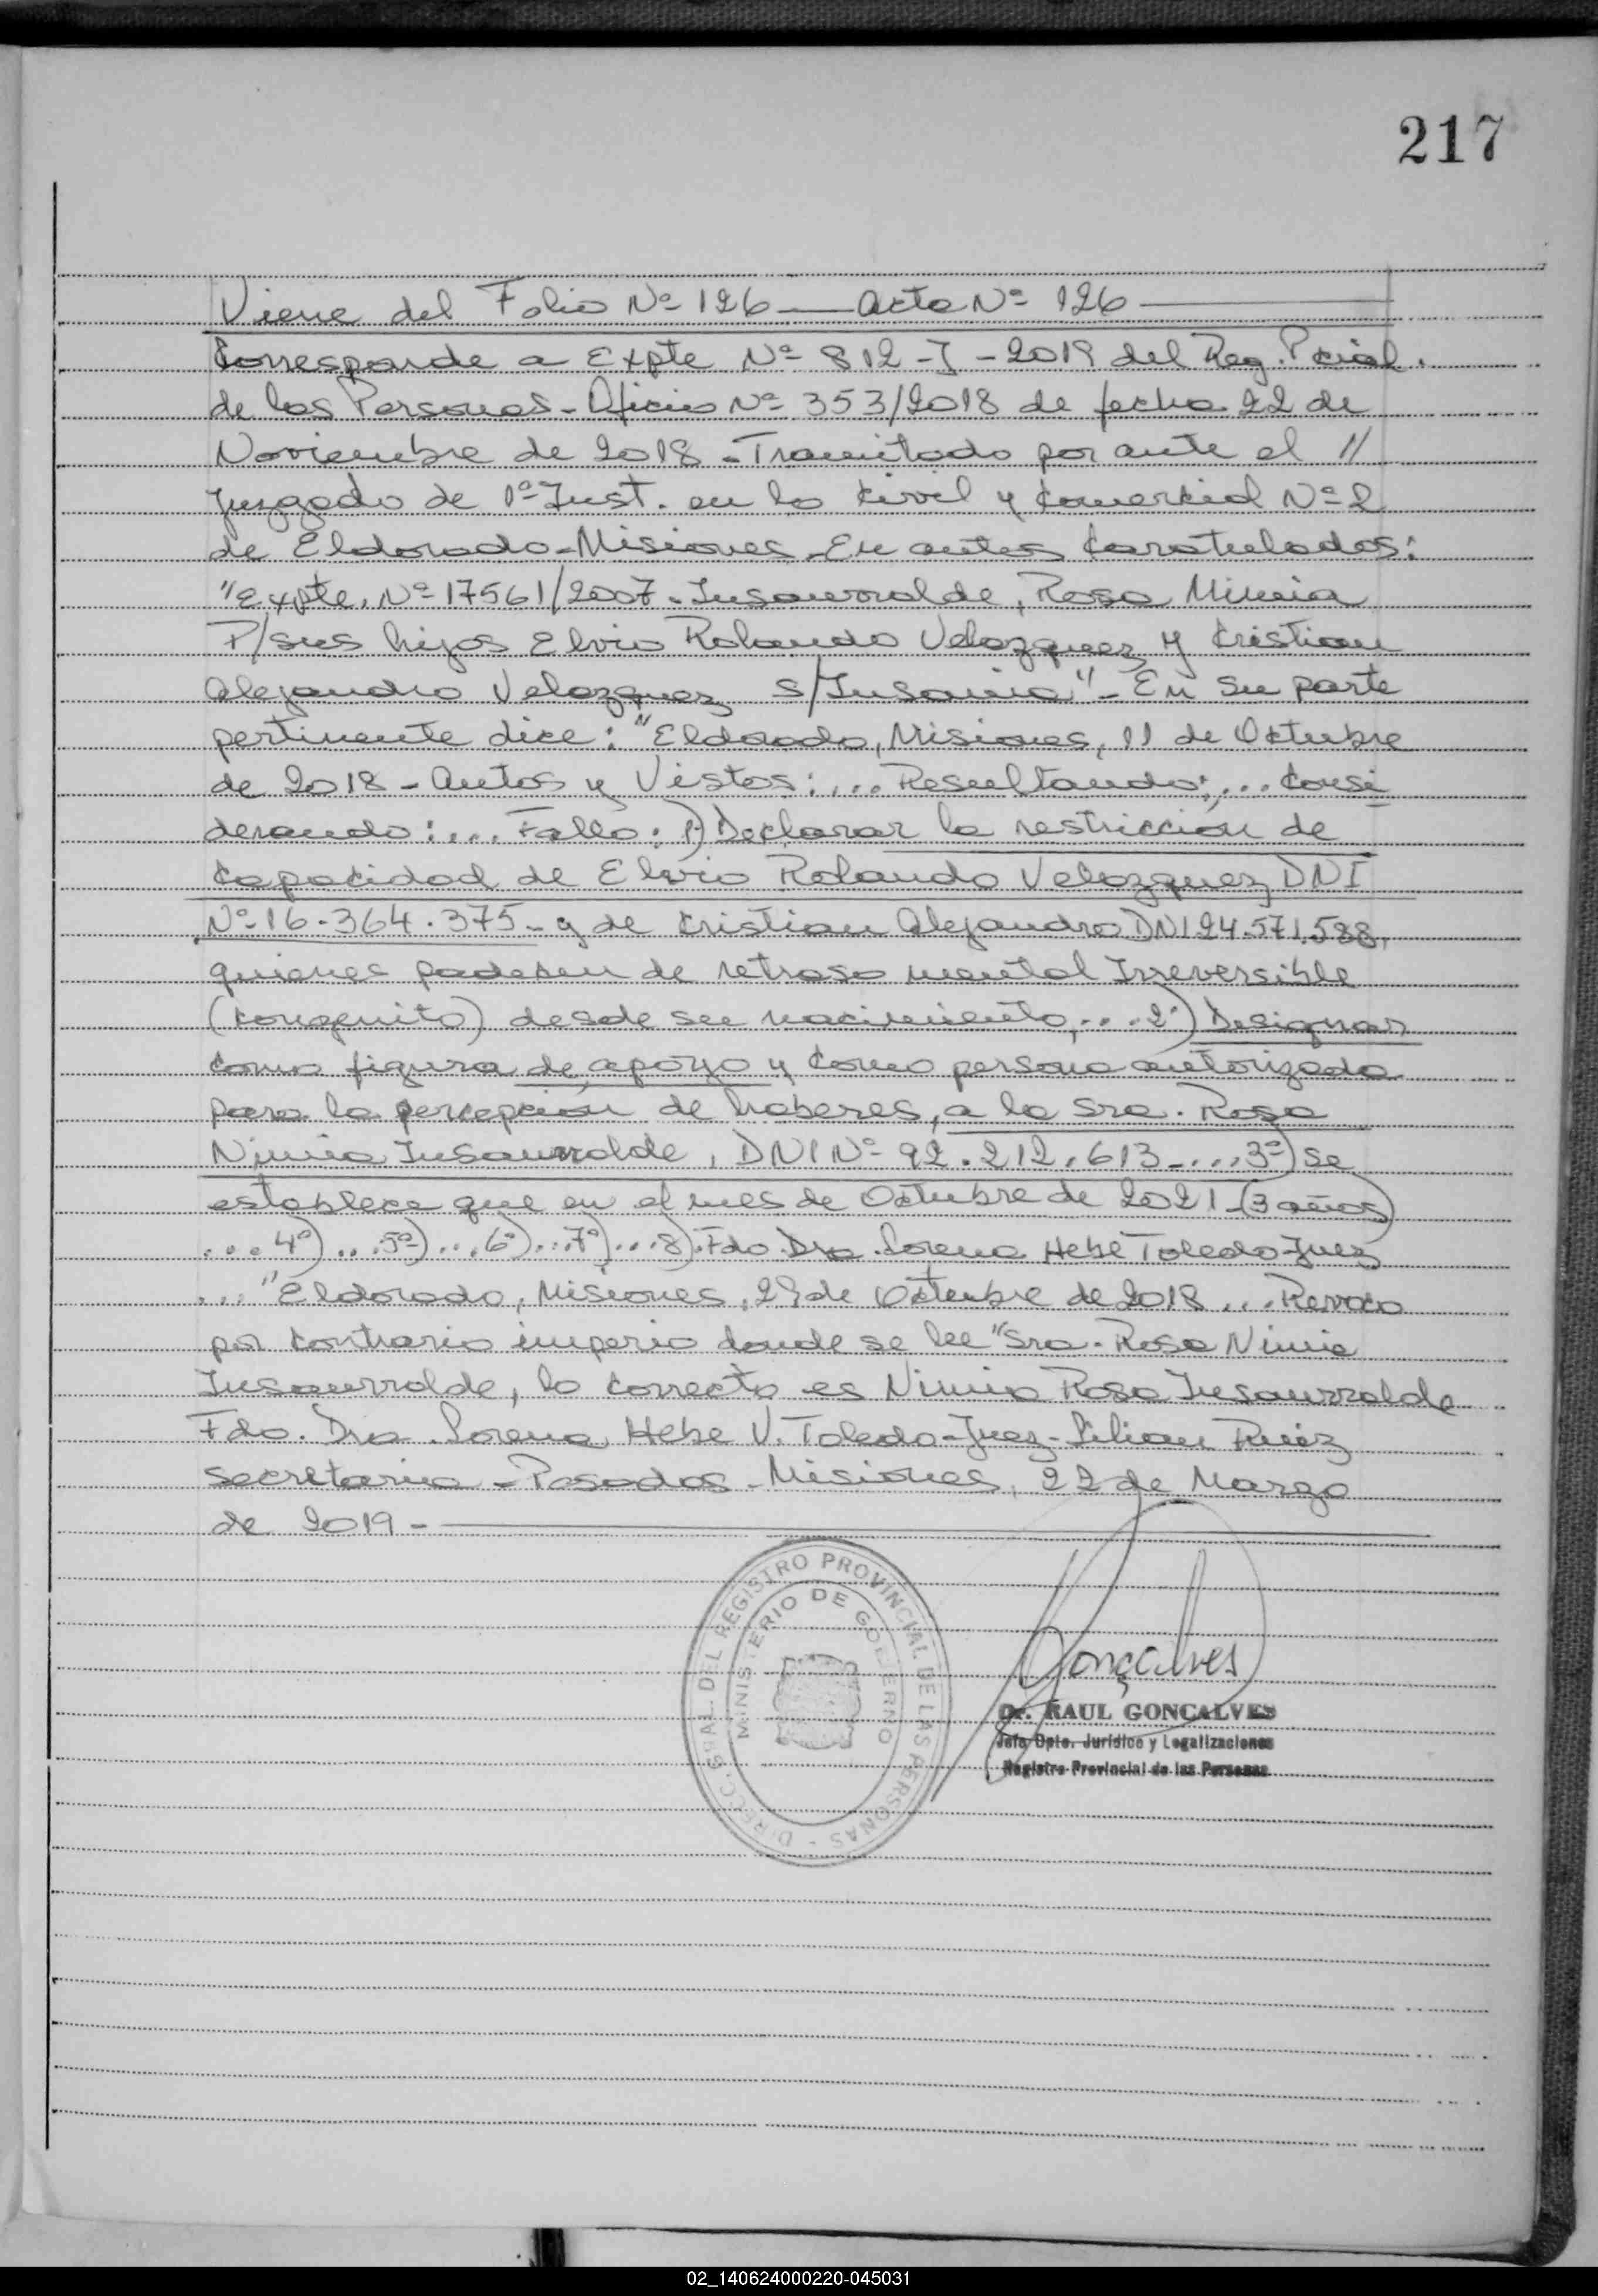 217
Viene del Folio Nº 126 — Acta Nº 126
Corresponde a Expte Nº 812-J-2019 del Reg. Pcial.
de las Personas - Oficio Nº 353/2018 de fecha 22 de
Noviembre de 2018 - Tramitado por ante el //
Juzgado de 1º Inst. en lo Civil y Comercial Nº 2
de Eldorado - Misiones - En autos Caratulados:
"Expte. Nº 17561/2007 - Insaurralde, Rosa Nimia
P/sus hijos Elvio Rolando Velazquez y Cristian
Alejandro Velazquez s/Insania" - En su parte
pertinente dice: "Eldorado, Misiones, 11 de Octubre
de 2018 - Autos y Vistos: ... Resultando: ... Consi
derando: ... Fallo: 1) Declarar la restricción de
Capacidad de Elvio Rolando Velazquez DNI
Nº 16.364.375 - y de Cristian Alejandro DNI 24.571.588,
quienes padecen de retraso mental Irreversible
(congenito) desde su nacimiento, ... 2º) Designar
como figura de apoyo y como persona autorizada
para la percepción de haberes, a la Sra. Rosa
Nimia Insaurralde, DNI Nº 92.212.613 - ... 3º) se
establece que en el mes de Octubre de 2021 - (3 años)
... 4º) ... 5º) ... 6º) ... 7º) ... 8). Fdo. Dra. Lorena Hebe Toledo - Juez
... "Eldorado, Misiones, 29 de Octubre de 2018 ... Revoco
por contrario imperio donde se lee "Sra. Rosa Nimia
Insaurralde, lo correcto es Nimia Rosa Insaurralde
Fdo. Dra. Lorena Hebe V. Toledo - Juez - Lilian Ruiz
Secretaria - Posadas - Misiones, 22 de Marzo
de 2019 -
DIRECC. GRAL. DEL REGISTRO PROVINCIAL DE LAS PERSONAS -
MINISTERIO DE GOBIERNO
Gonçalves
Dr. RAUL GONÇALVES
Jefe Dpto. Jurídico y Legalizaciones
Registro Provincial de las Personas
02_140624000220-045031